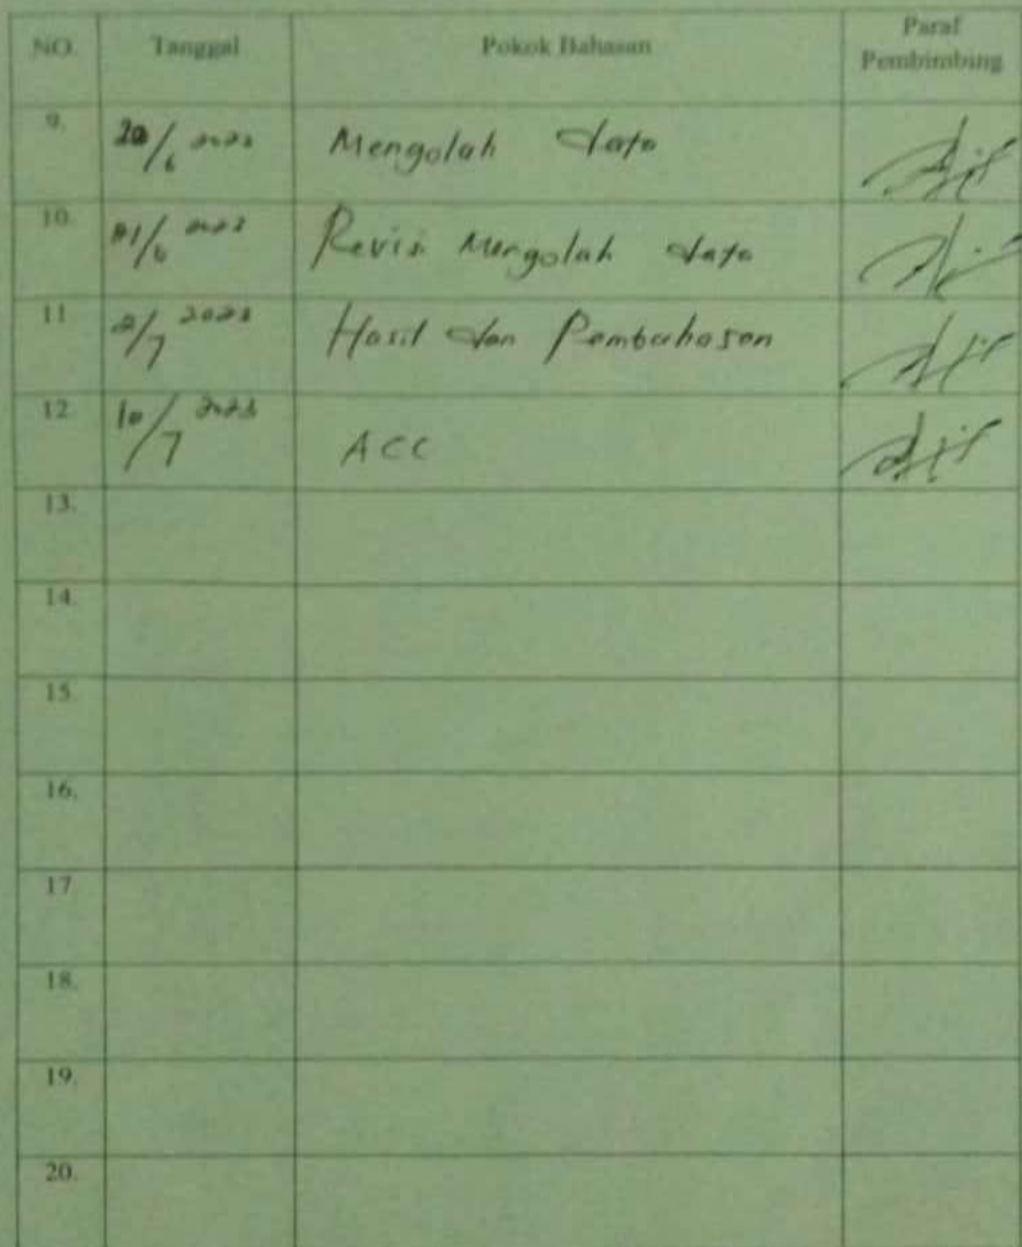 NO. Tanggal Pokok Bahasan Paraf Pembimbing
9. 20/6 2023 Mengolah data
10. 21/6 2023 Revisi Mengolah data
11 2/7 2023 Hasil dan Pembahasan
12 10/7 2023 ACC
13.
14.
15.
16.
17
18.
19.
20.